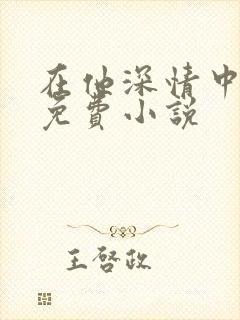 在他深情中
免費小說
王啓政